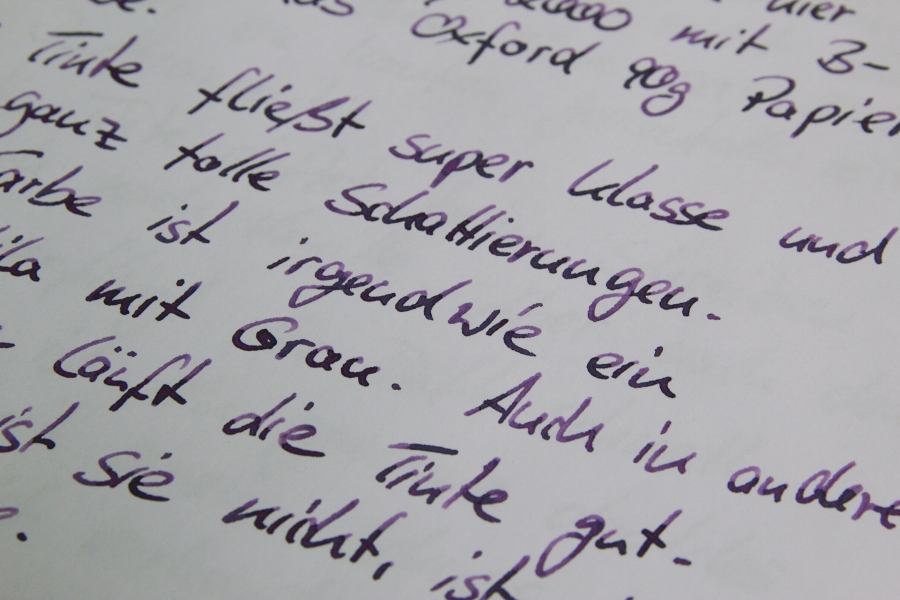 hier
mit B-
Oxford 90g Papier
Tinte fließt super klasse und
ganz tolle Schattierungen.
Farbe ist irgendwie ein
Lila mit Grau. Auch in andere
läuft die Tinte gut.
ist sie nicht, ist